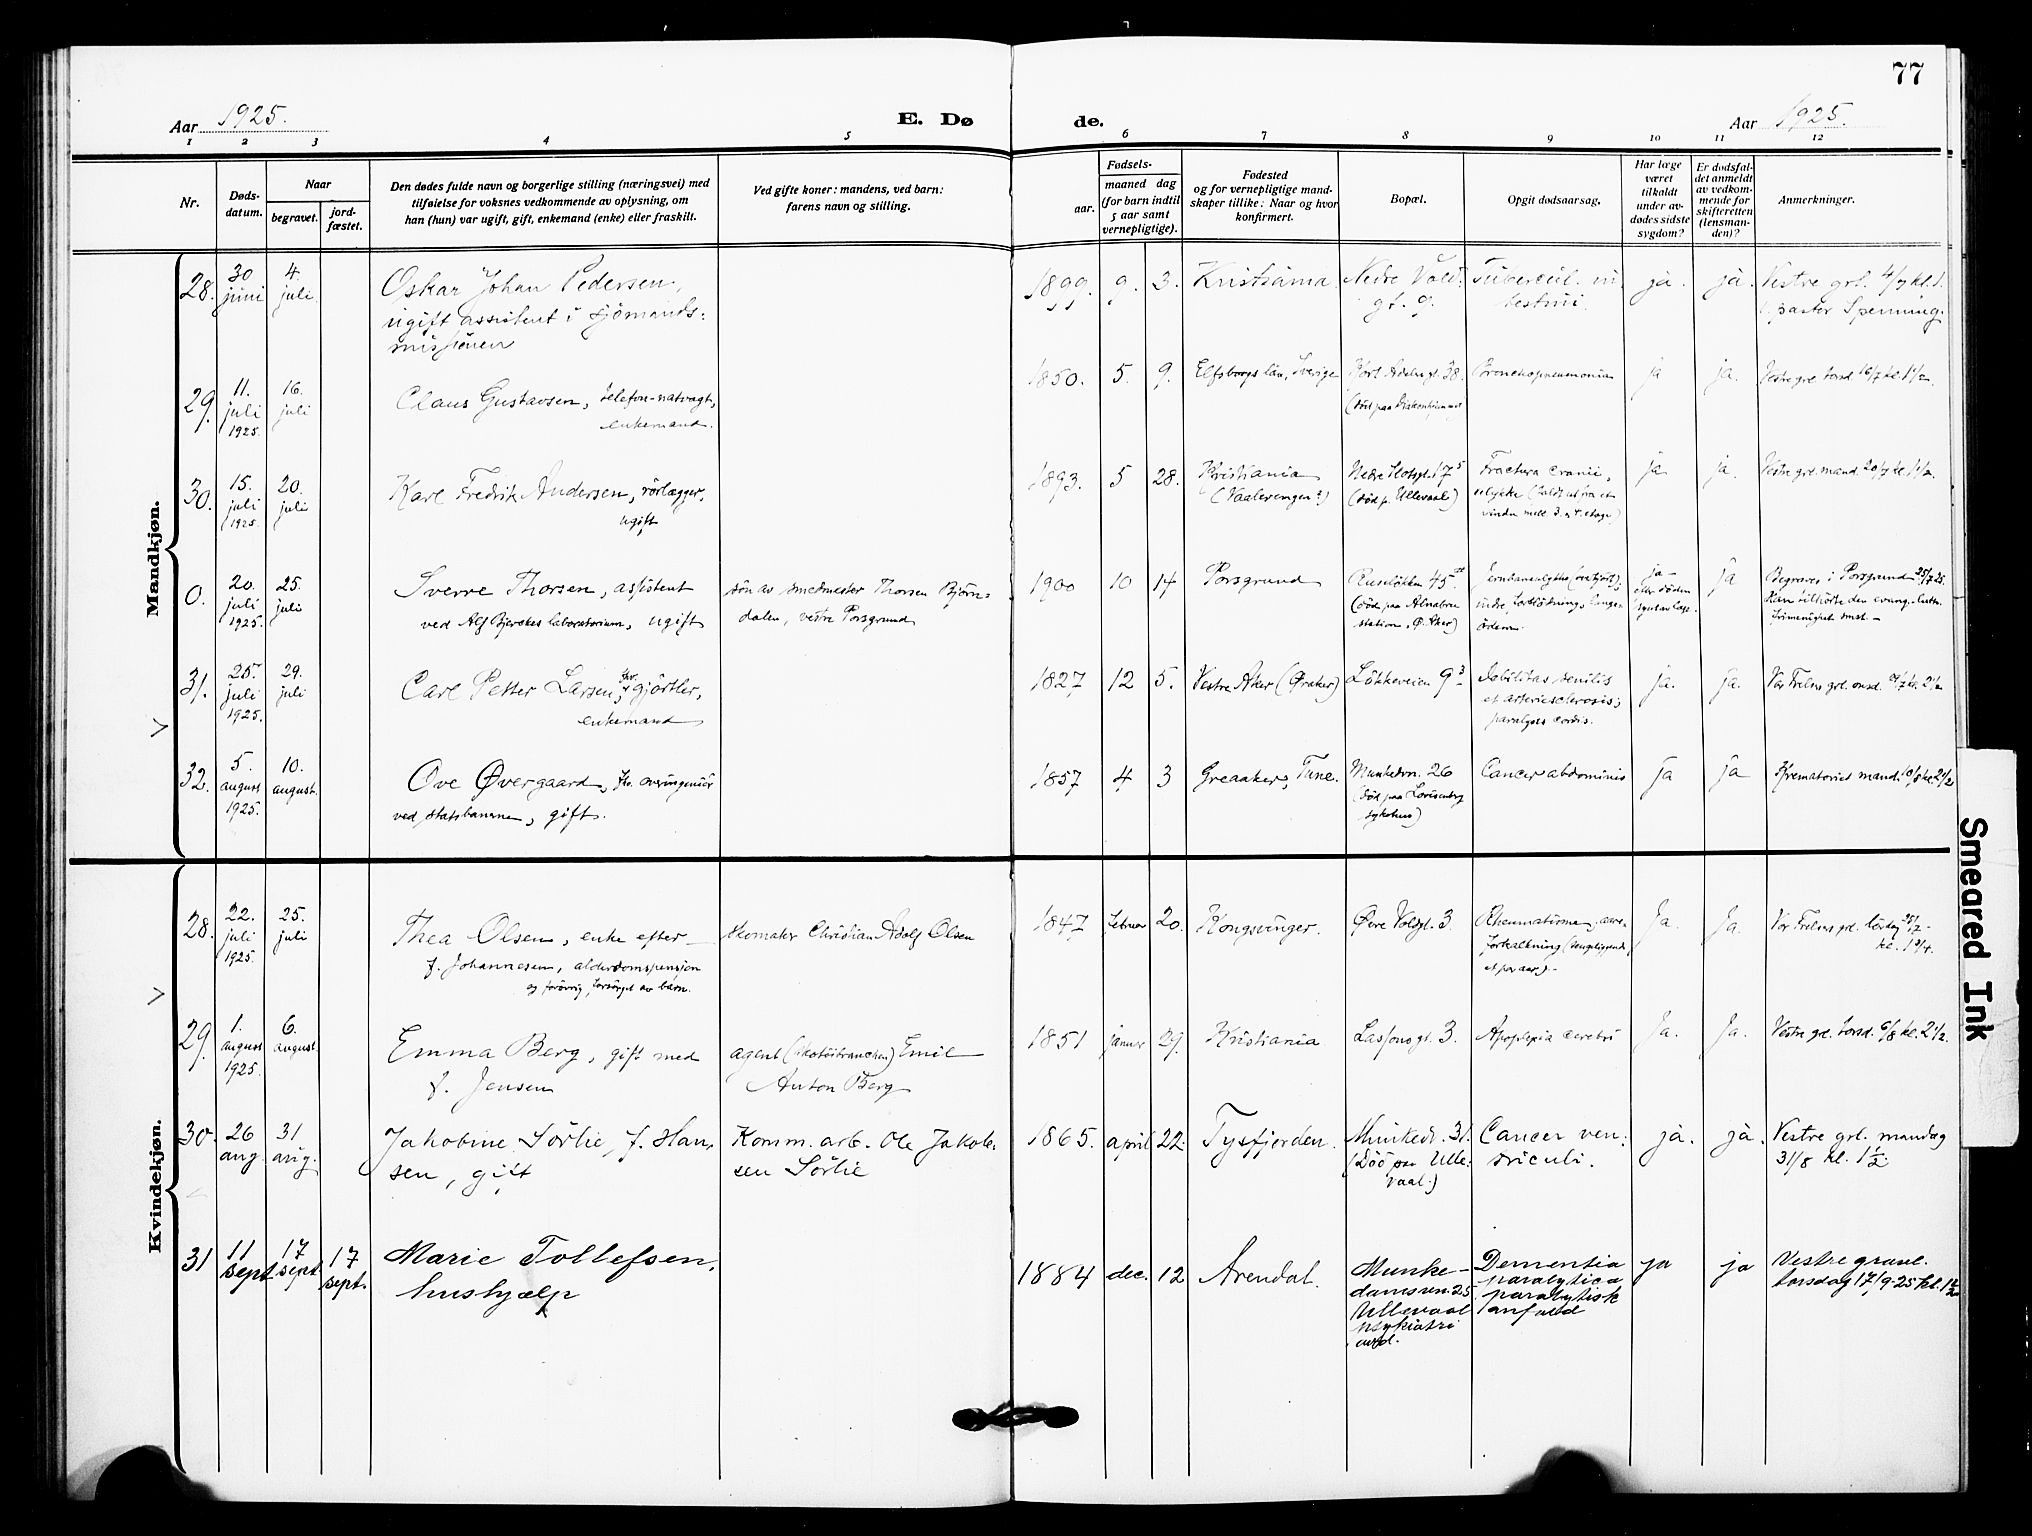 77
Aar 1925.
E. Døde.
Aar 1925.
1 2 3 4 5 6 7 8 9 10 11 12
Nr.
Døds-
datum.
Naar
begravet.
jord-
fæstet.
Den dødes fulde navn og borgerlige stilling (næringsvei) med
tilføielse for voksnes vedkommende av oplysning, om
han (hun) var ugift, gift, enkemand (enke) eller fraskilt.
Ved gifte koner: mandens, ved barn:
farens navn og stilling.
Fødsels-
aar.
maaned dag
(for barn indtil
5 aar samt
vernepligtige).
Fødested
og for vernepligtige mand-
skaper tillike: Naar og hvor
konfirmert.
Bopæl.
Opgit dødsaarsag.
Har læge
været
tilkaldt
under av-
dødes sidste
sygdom?
Er dødsfal-
det anmeldt
av vedkom-
mende for
skifteretten
(lensman-
den)?
Anmerkninger.
Mandkjøn.
28.
30
juni
4.
juli
Oskar Johan Pedersen,
ugift assistent i sjömands-
missionen
1899.
9.
3.
Kristiania.
Nedre Vold-
gt. 9.
Tubercul. in
testini.
ja.
ja.
Vestre grl. 4/7 kl. 1.
pastor Spenning.
29.
11.
juli
1925.
16.
juli
Claus Gustavsen, telefon-natvagt,
enkemand.
1850.
5.
9.
Elfsborgs län, Sverige
Kort Adelersgt. 38.
(död paa Diakonhjemmet
Bronchopneumonia
ja
ja.
Vestre grl. torsd. 16/7 kl. 1 1/2.
30.
15.
juli
1925.
20.
juli
Karl Fredrik Andersen, rörlægger,
ugift
1893.
5
28.
Kristiania
(Vaalerengen?)
Nedre Slotsgt. 17 5
(död p. Ullevaal)
Fractura cranii,
ulykke (faldt ut fra et
vindu mell. 3. og 4. etage)
ja
ja.
Vestre grl. mand. 20/7 kl. 1 1/2.
0.
20.
juli
1925.
25.
juli
Sverre Thorsen, assistent
ved Alf Bjerckes laboratorium, ugift
sön av smedmester Thorsen Björn-
dalen, vestre Porsgrund
1900
10
14
Porsgrund
Ruselökken 45
(död paa Alnabru
station, Ö. Aker)
Jernbaneulykke (overkjört);
indre forblödning, lunge-
ödem.
ja-
efter döden
ja
Begraves i Porsgrund 25/7 25.
Han tilhörte den evang.-luth.
frimenighet smst. -
31.
25.
juli
1925.
29.
juli
Carl Petter Larsen, fhv. gjörtler,
enkemand
1827
12
5.
Vestre Aker (Øraker)
Lökkeveien 9 3
Debilitas senilis
et arteriesclerosis;
paralyses cordis.
ja.
ja.
Vor Frelsers grl. onsd. 29/7 kl. 2 1/2
32.
5.
august
1925.
10.
august.
Ove Øvergaard, fhv. overingeniör
ved statsbanerne, gift.
1857
4
3
Greaaker, Tune.
Munkedvn. 26
(död paa Lovisenberg
sykehus)
Cancer abdominis
ja
ja
Krematoriet mand. 10/8 kl. 2 1/2
Kvindekjøn.
28.
22.
juli
1925.
25.
juli
Thea Olsen, enke efter
f. Johannesen, alderdomspensjon
og forövrig forsörget av barn.
skomaker Christian Adolf Olsen
1847
februar
20.
Kongsvinger.
Øvre Voldgt. 3.
Rheumatisme, aare-
forkalkning (sengeliggende
et par aar). -
Ja.
Ja.
Vor Frelsers grl. lördag 25/7 -
kl. 1 3/4.
29.
1.
august
1925.
6.
august.
Emma Berg, gift med
f. Jensen
agent (skotöibranchen) Emil
Anton Berg
1851
januar
29.
Kristiania
Lassonsgt. 3.
Apoplexia cerebri
Ja.
Ja.
Vestre grl. torsd. 6/8 kl. 2 1/2.
30.
26
aug.
31
aug.
Jakobine Sörlie, f. Han-
sen, gift
Komm. arb. Ole Jakob-
sen Sörlie
1865.
april
22.
Tysfjorden.
Munkedv. 31.
(Död paa Ulle-
vaal.)
Cancer ven-
triculi.
ja.
ja.
Vestre grl. mandag
31/8 kl. 1 1/2.
31
11
sept.
17
sept.
17
sept.
Marie Tollefsen,
hushjælp
1884
dec.
12
Arendal.
Munke-
damsvn. 25
Ullevaal
psykiatri
avd.
Dementia
paralytica
paralytisk
anfald
ja
ja
Vestre gravl.
torsdag 17/9-25 kl. 1 1/2
Smeared Ink